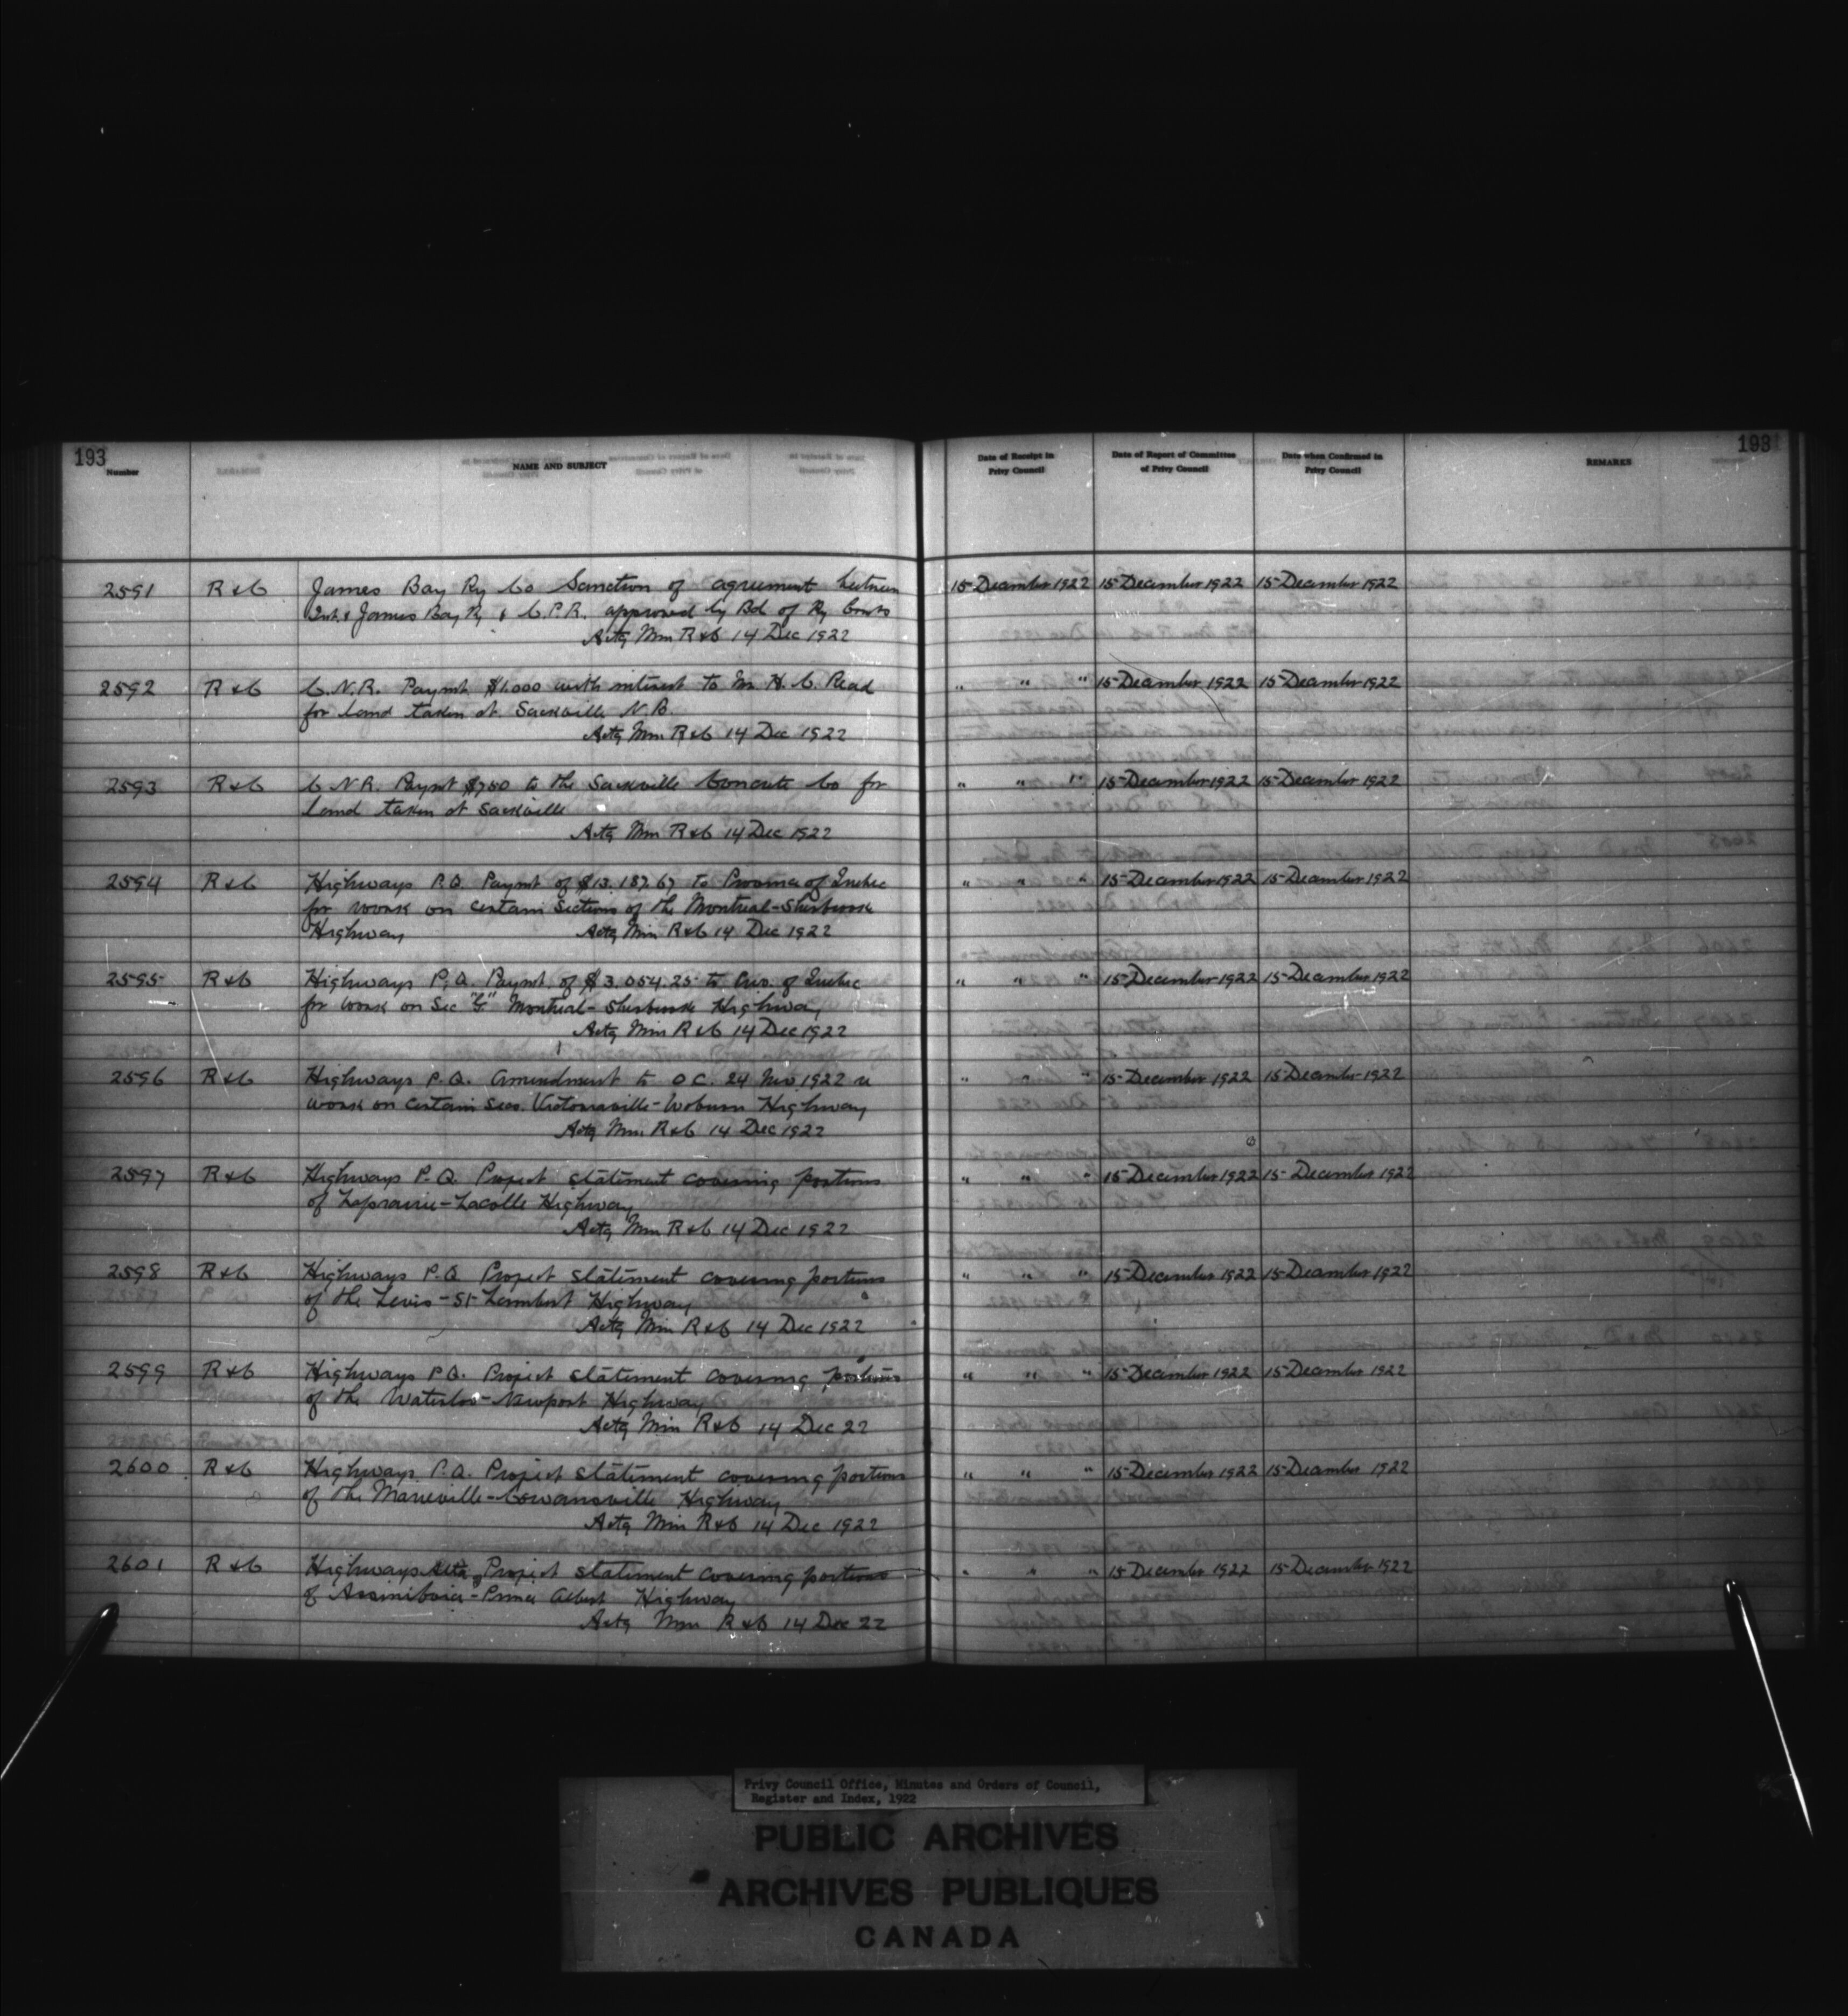 193
193
Number
NAME AND SUBJECT
Date of Receipt in
Privy Council
Date of Report of Committee
of Privy Council
Date when Confirmed in
Privy Council
REMARKS
2591 R & C James Bay Ry Co Sanction of agreement between 15 December 1922 15 December 1922 15 December 1922
Ont. & James Bay Ry & C.P.R. approved by Bd of Ry Coms
Actg Min R & C 14 Dec 1922
2592 R & C C.N.R. Paymt $1.000 with interest to Mr H. C. Read " " " 15 December 1922 15 December 1922
for land taken at Sackville N.B.
Actg Min R & C 14 Dec 1922
2593 R & C C N R. Paymt $750 to the Sackville Concrete Co for " " " 15 December 1922 15 December 1922
land taken at Sackville
Actg Min R & C 14 Dec 1922
2594 R & C Highways P.Q. Paymt of $13.187.67 to Province of Quebec " " " 15 December 1922 15 December 1922
for work on certain Sections of the Montreal-Sherbrooke
Highway Actg Min R & C 14 Dec 1922
2595 R & C Highways P.Q. Paymt. of $3.054.25 to Prov. of Quebec " " " 15 December 1922 15 December 1922
for work on Sec Montreal-Sherbrooke Highway
Actg Min R & C 14 Dec 1922
2596 R & C Highways P.Q. Amendment to O C. 24 Nov. 1922 re " " " 15 December 1922 15 December 1922
work on certain secs. Victoriaville-Woburn Highway
Actg Min R & C 14 Dec 1922
2597 R & C Highways P.Q. Project statement covering portions " " " 15 December 1922 15 December 1922
of Laprairie-Lacolle Highway
Actg Min R & C 14 Dec 1922
2598 R & C Highways P.Q Project statement covering portions " " " 15 December 1922 15 December 1922
of the Levis-St Lambert Highway
Actg Min R & C 14 Dec 1922
2599 R & C Highways P.Q. Project statement covering portions " " " 15 December 1922 15 December 1922
of the Waterloo-Newport Highway
Actg Min R & C 14 Dec 22
2600 R & C Highways P.Q. Project statement covering portions " " " 15 December 1922 15 December 1922
of the Marieville-Cowansville Highway
Actg Min R & C 14 Dec 1922
2601 R & C Highways Alta Project statement covering portions " " " 15 December 1922 15 December 1922
of Assiniboia-Prince Albert Highway
Actg Min R & C 14 Dec 22
Privy Council Office, Minutes and Orders of Council,
Register and Index, 1922
PUBLIC ARCHIVES
ARCHIVES PUBLIQUES
CANADA